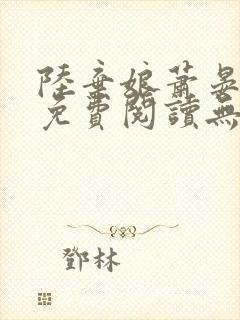 陸棄娘蕭晏
免費閱讀無
鄧林